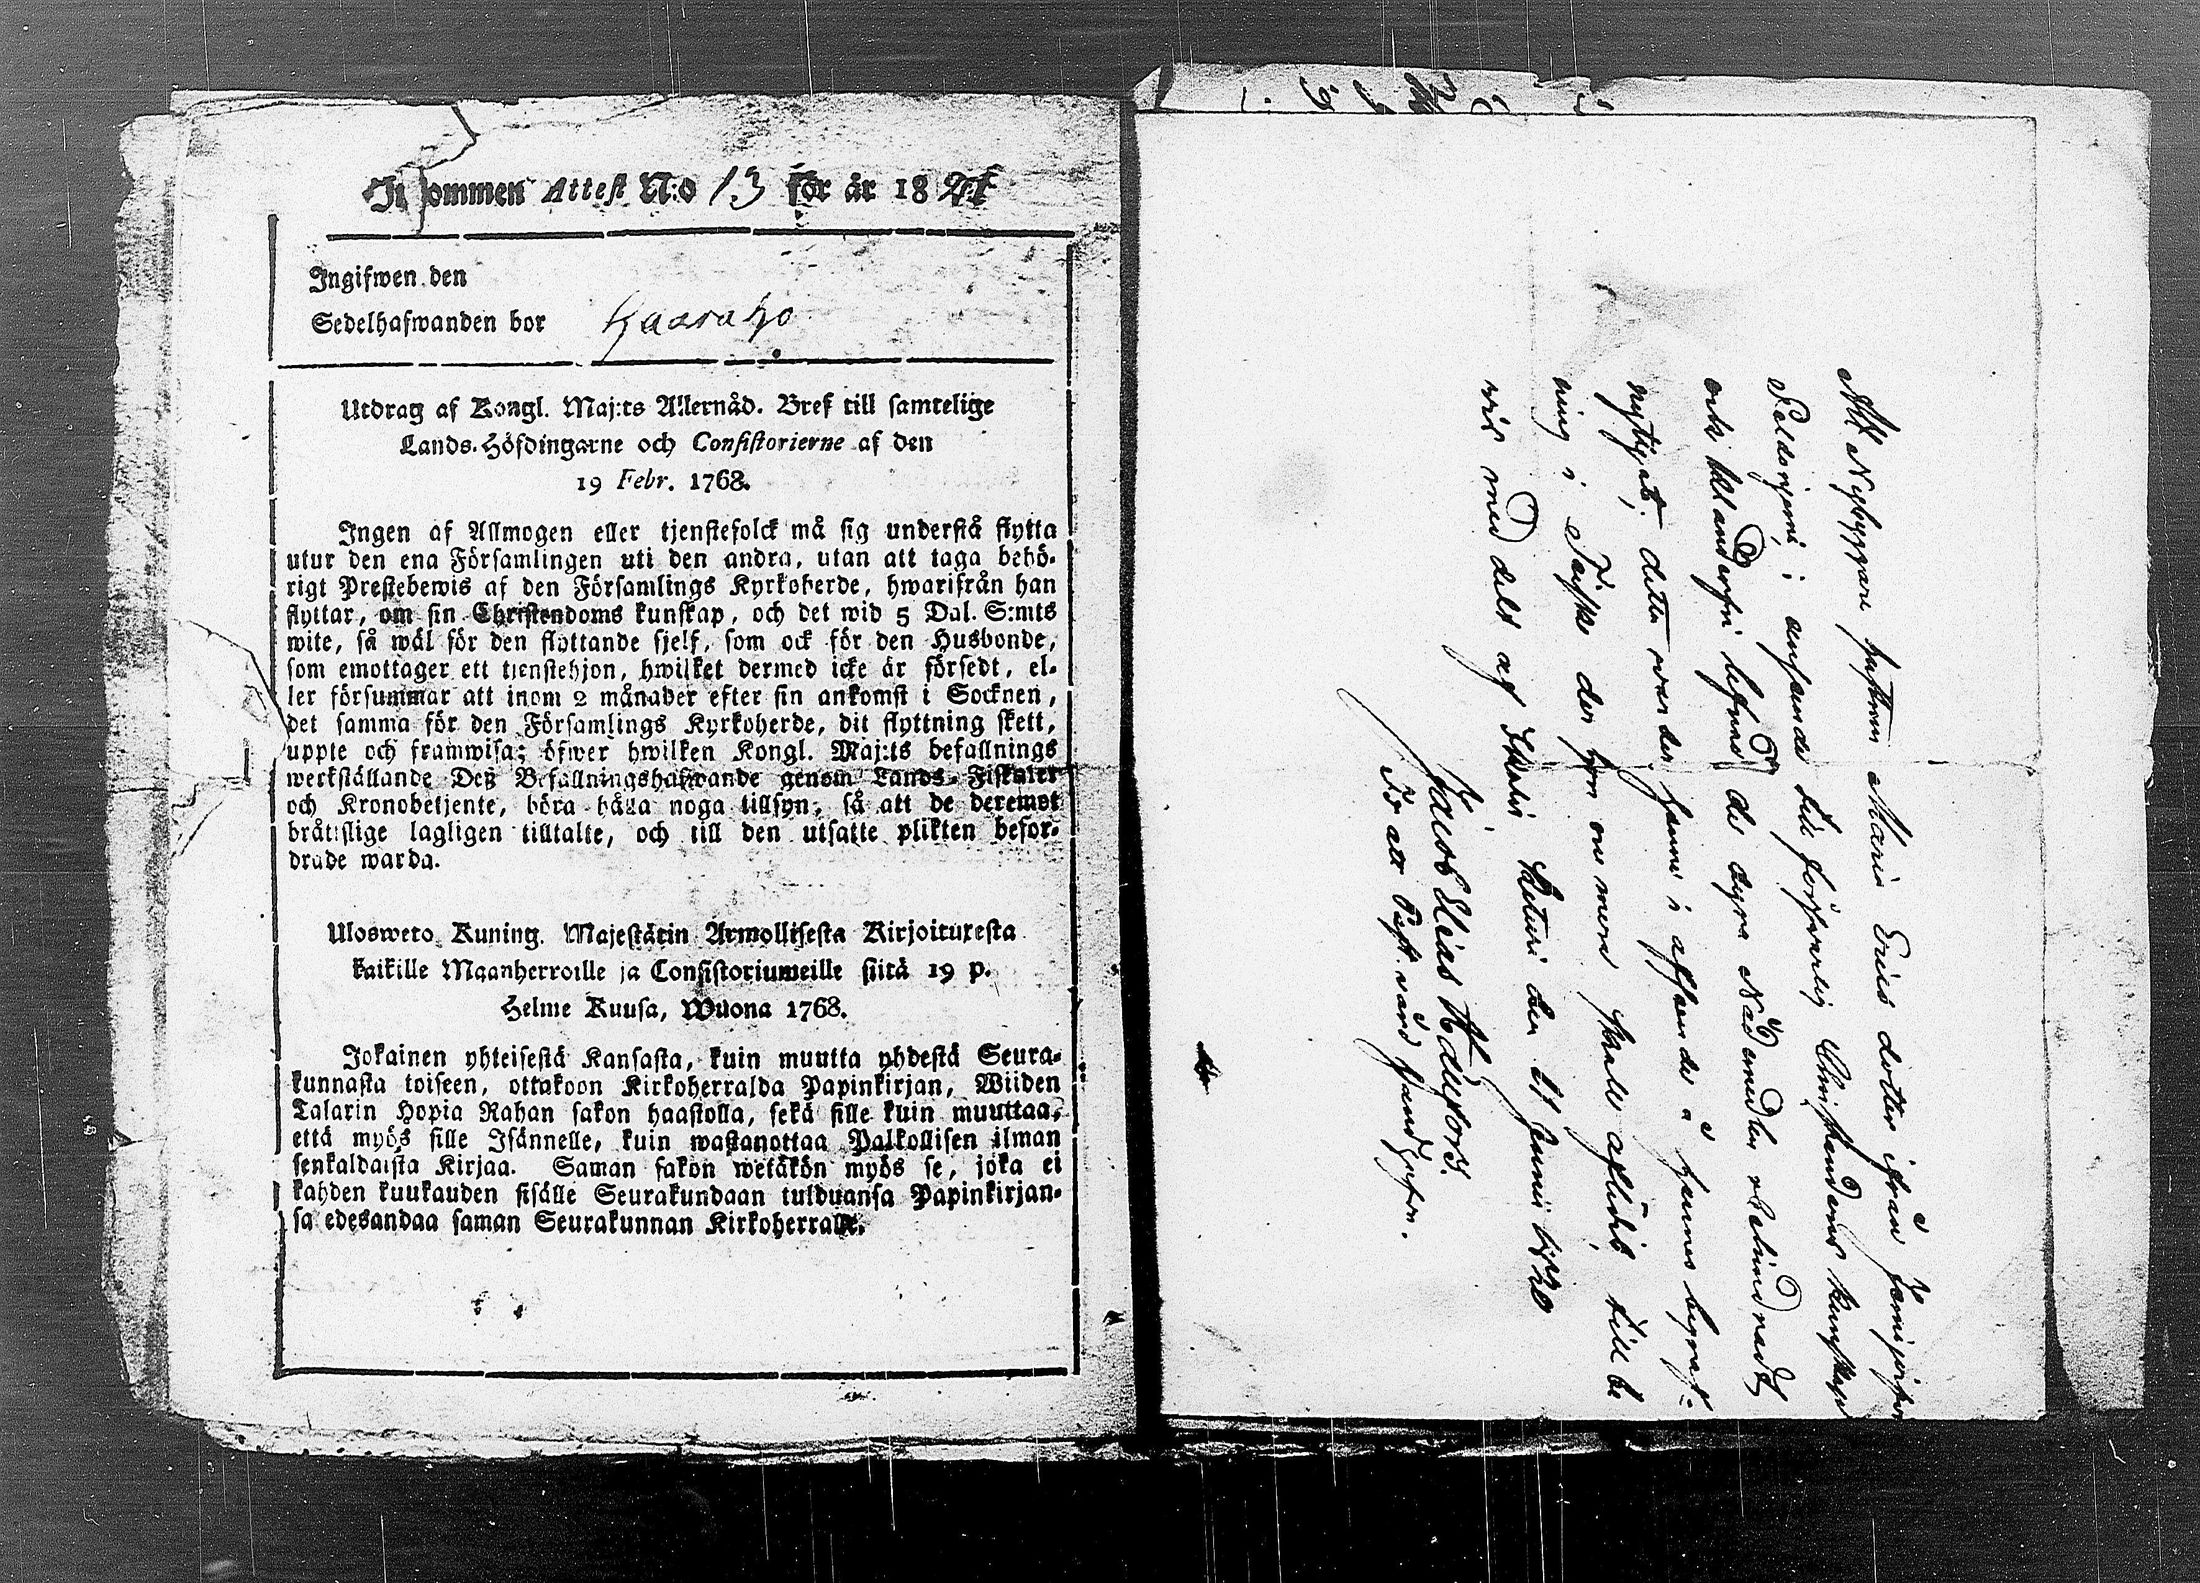 Inkommen Attest N:o 13 för år 1821
Ingifwen den
Sedelhafwanden bor Kaarako
Utdrag af Kongl. Maj:ts Allernåd. Bref till samtelige
Lands-Höfdingarne och Consistorierne af den
19 Febr. 1768.
Ingen af Allmogen eller tjenstefolck må sig understå flytta
utur den ena Församlingen uti den andra, utan att taga behö-
rigt Prestebewis af den Församlings Kyrkoherde, hwarifrån han
flyttar, om sin Christendoms kunskap, och det wid 5 Dal. S:mts
wite, så wäl för den flyttande sjelf, som ock för den Husbonde,
som emottager ett tjenstehjon, hwilket dermed icke är försedt, el-
ler försummar att inom 2 månader efter sin ankomst i Socknen,
det samma för den Församlings Kyrkoherde, dit flyttning skett,
uppte och framwisa; öfwer hwilken Kongl. Maj:ts befallnings
werkställande Deß Befallningshafwande genom Lands-Fiskaler
och Kronobetjente, böra hålla noga tillsyn, så att de deremot
bråttslige lagligen tilltalte, och till den utsatte plikten befor-
drade warda.
Ulosweto Kuning. Majestätin Armollisesta Kirjoituxesta
kaikille Maanherroille ja Consistoriumeille siitä 19 p.
Helme Kuusa, Wuona 1768.
Jokainen yhteisestä Kansasta, kuin muutta yhdestä Seura-
kunnasta toiseen, ottakoon Kirkoherralda Papinkirjan, Wiiden
Talarin Hopia Rahan sakon haastolla, sekä sille kuin muuttaa,
että myös sille Isännelle, kuin wastanottaa Palkollisen ilman
senkaldaista Kirjaa. Saman sakon wetäkön myös se, joka ei
kahden kuukauden sisälle Seurakundaan tulduansa Papinkirjan-
sa edesandaa saman Seurakunnan Kirkoherralle.
Att Nybyggare hustrun Maria Erics dotter ifrån
i anseende till förswarlig Christendoms kunskap
och klanderfri lefnad de dyra Nådemedlen
nyttjat, detta warder henne i afseende å hennes begraf-
ning i der hon nu mera skall aflidit, till be
wis med delt af den 11 Junii 1820
Jacob Elias
För att Past. vård handhafw.